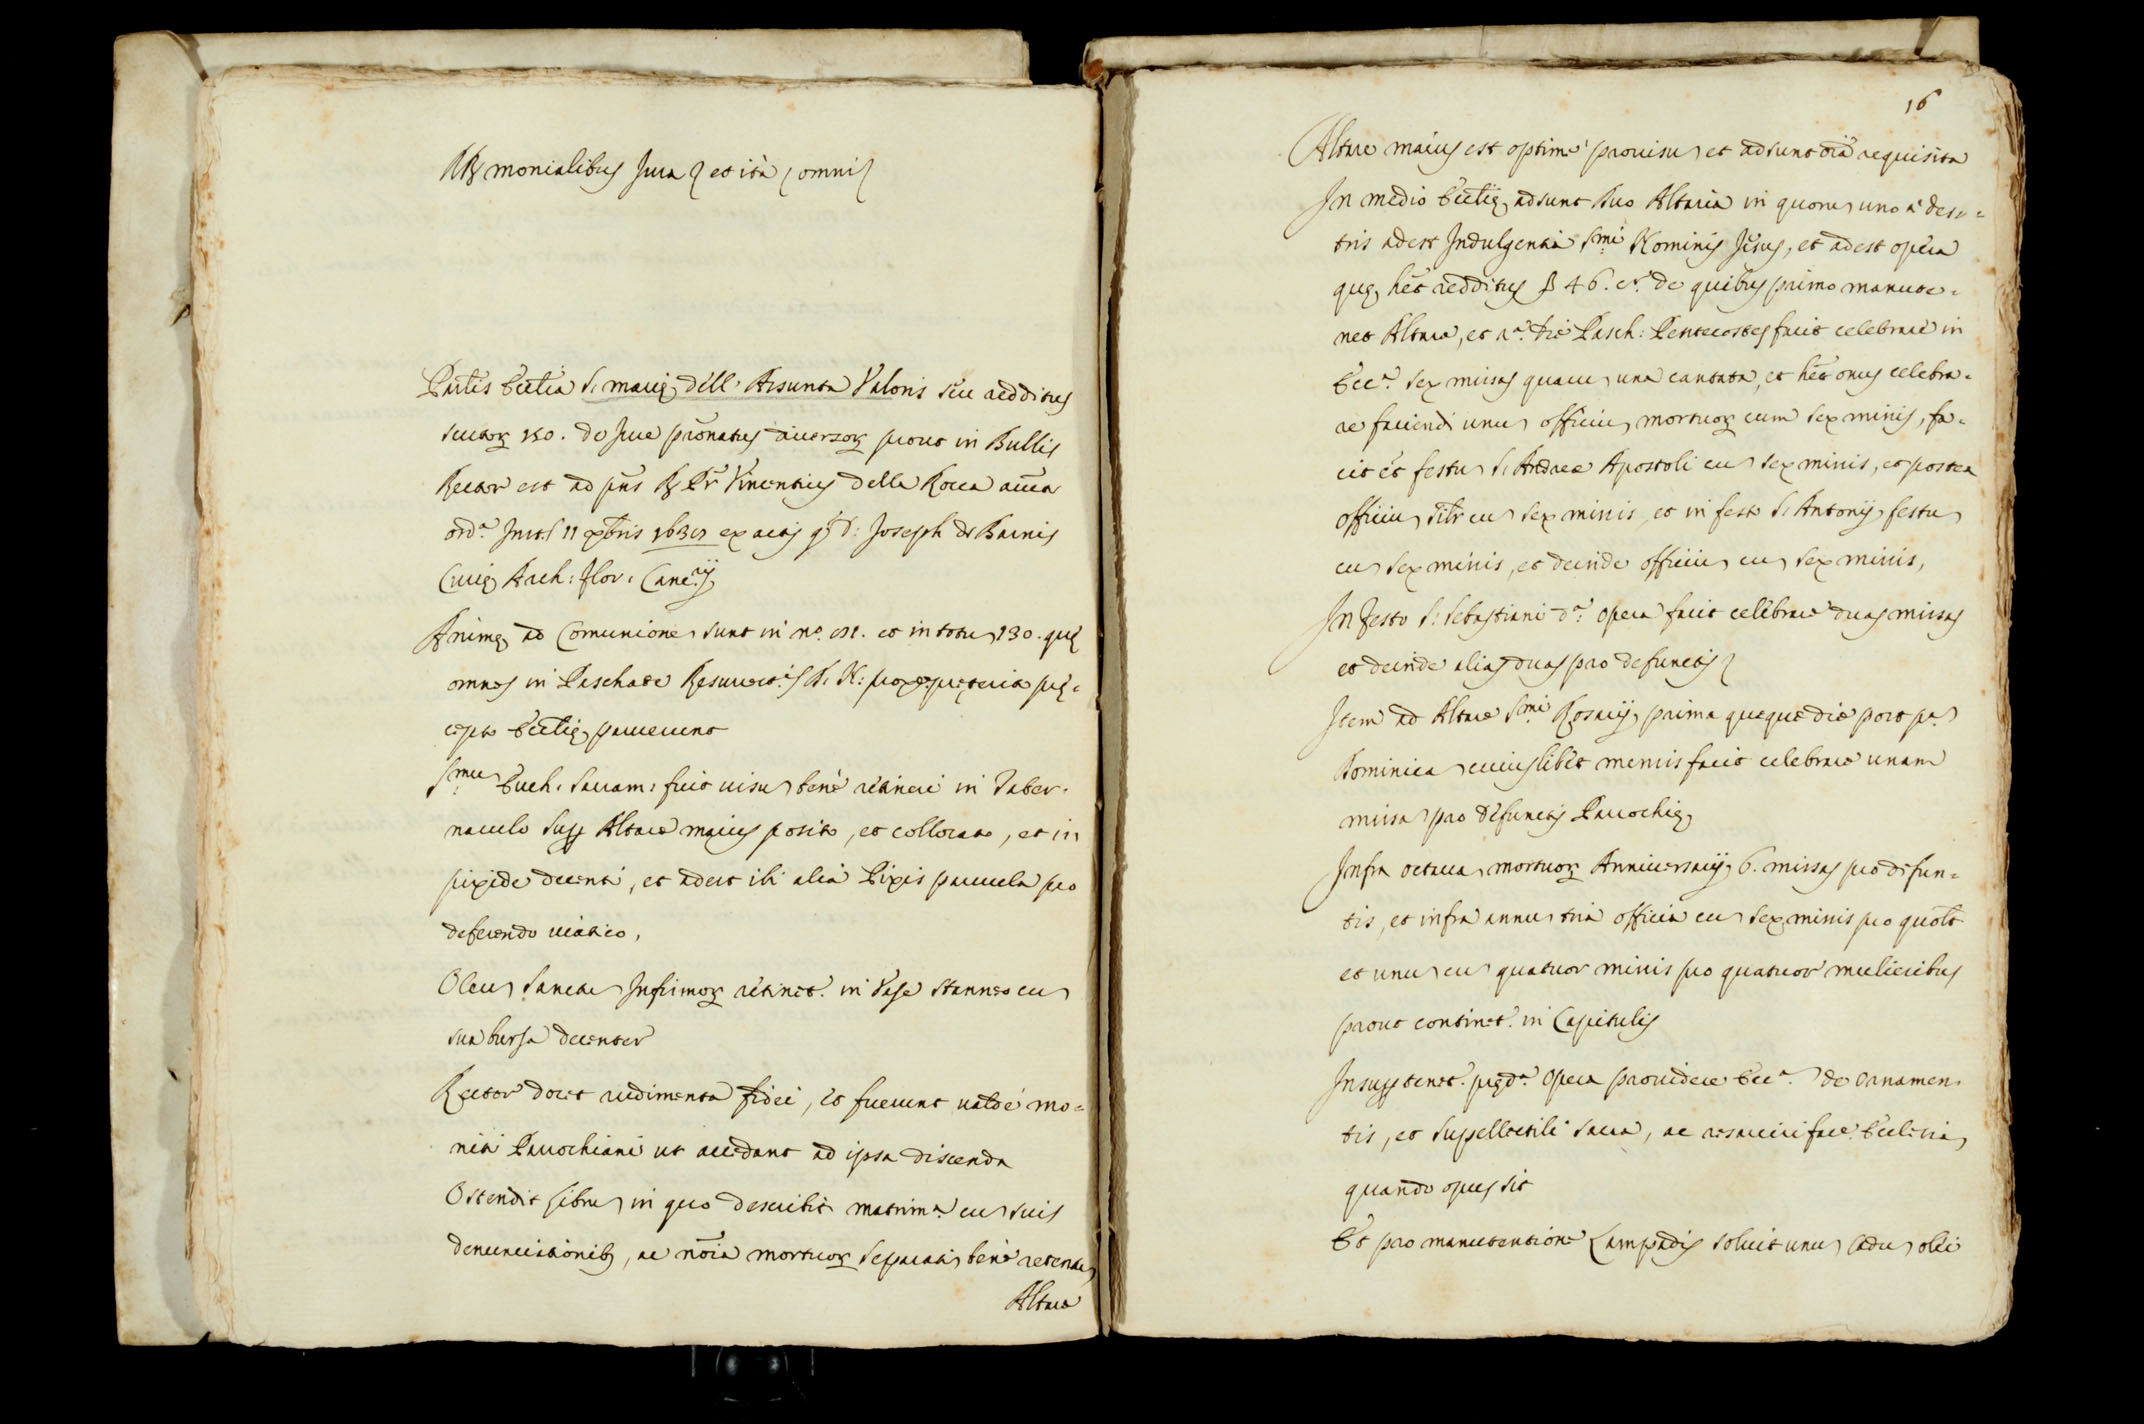 monialibus Jura et ità omni
Ecc̄tia S. marię dell' Assunta Valoris seu redditus
scutorꝝ 150. de Jure pr̄onatus diuersorꝝ prout in Bullis
Rector est ad pn̄s R Pr̄ Vincentius della Rocca
ord.ᵃ 11 xbris ex actis Joseph de Barnis
Curię Arch: flor: Canc.ʳⁱʲ
Animę ad Comunione sunt in nᵒ. et in totu 130. quę
omnes in Paschate D. N: pręterita prę=
cepto Ecc̄tię paruerunt
Sᵐᵘ Euch. Sacram: fuit uisu benè retineri in Taber=
naculo supp Altare maius posito, et collocato, et in
pixide decenti, et adest ibi alia Pixis paruula pro
deferendo uiatico,
Oleu Sanctu Infirmorꝝ retinet.ʳ in Vase stanneo cu
sua bursa decenter
Rector docet rudimenta fidei, et fuerunt ualdè mo=
niti Parochiani ut accedant ad ipsa discenda
Ostendit librum in quo describit matrim.ᵃ cu suis
denunciationibꝫ, ac nōia mortuorꝝ separatim benè retenta
Altare
16
Altare maius est optimè prouisu et adsunt oīa requisita
In medio Ecc̄tię adsunt duo Altaria in quoru uno à dex=
tris adest Indulgentia Sᵐⁱ Nominis Jēsus, et adest opera
quę hēt redditus 46. cᵃ. de quibus primo manute=
net Altare, et die Pasch: Pentecostes facit celebrare in
Ecc.ᵃ sex missas quaru una cantata, et hēt onus celebra=
re faciendi unu officiu mortuorꝝ cum sex missis, fa=
cit et festu S. Andree Apostoli cu sex missis, et postea
officiu sil̄r cu sex missis, et in festo S. Antonij festu
cu sex missis, et deinde officiu cu sex missis,
In festo S: Sebastiani d.ᵃ opera facit celebrare duas missas
et deinde alias duas pro defunctis
Item ad Altare Sᵐⁱ Rosarij, prima quaque die post pᵃ
Dominica cuiuslibet mensis facit celebrare unam
missa pro defunctis Parochię
Infra octaua mortuorꝝ Anniuersarij 6. missas pro defun=
tis, et infra annu tria officia cu sex missis pro quolt
et unu cu quatuor missis pro quatuor mulieribus
prout continet.ʳ in Capitulis
Insupp tenet.ʳ prędᵃ opera prouidere Ecc.ᵃ de ornamen=
tis, et suppellectili sacra, ac resarciri fac.ᵉ Ecclesia
quando opus sit
Et pro manutentione Lampadis soluit unu Cadu olei